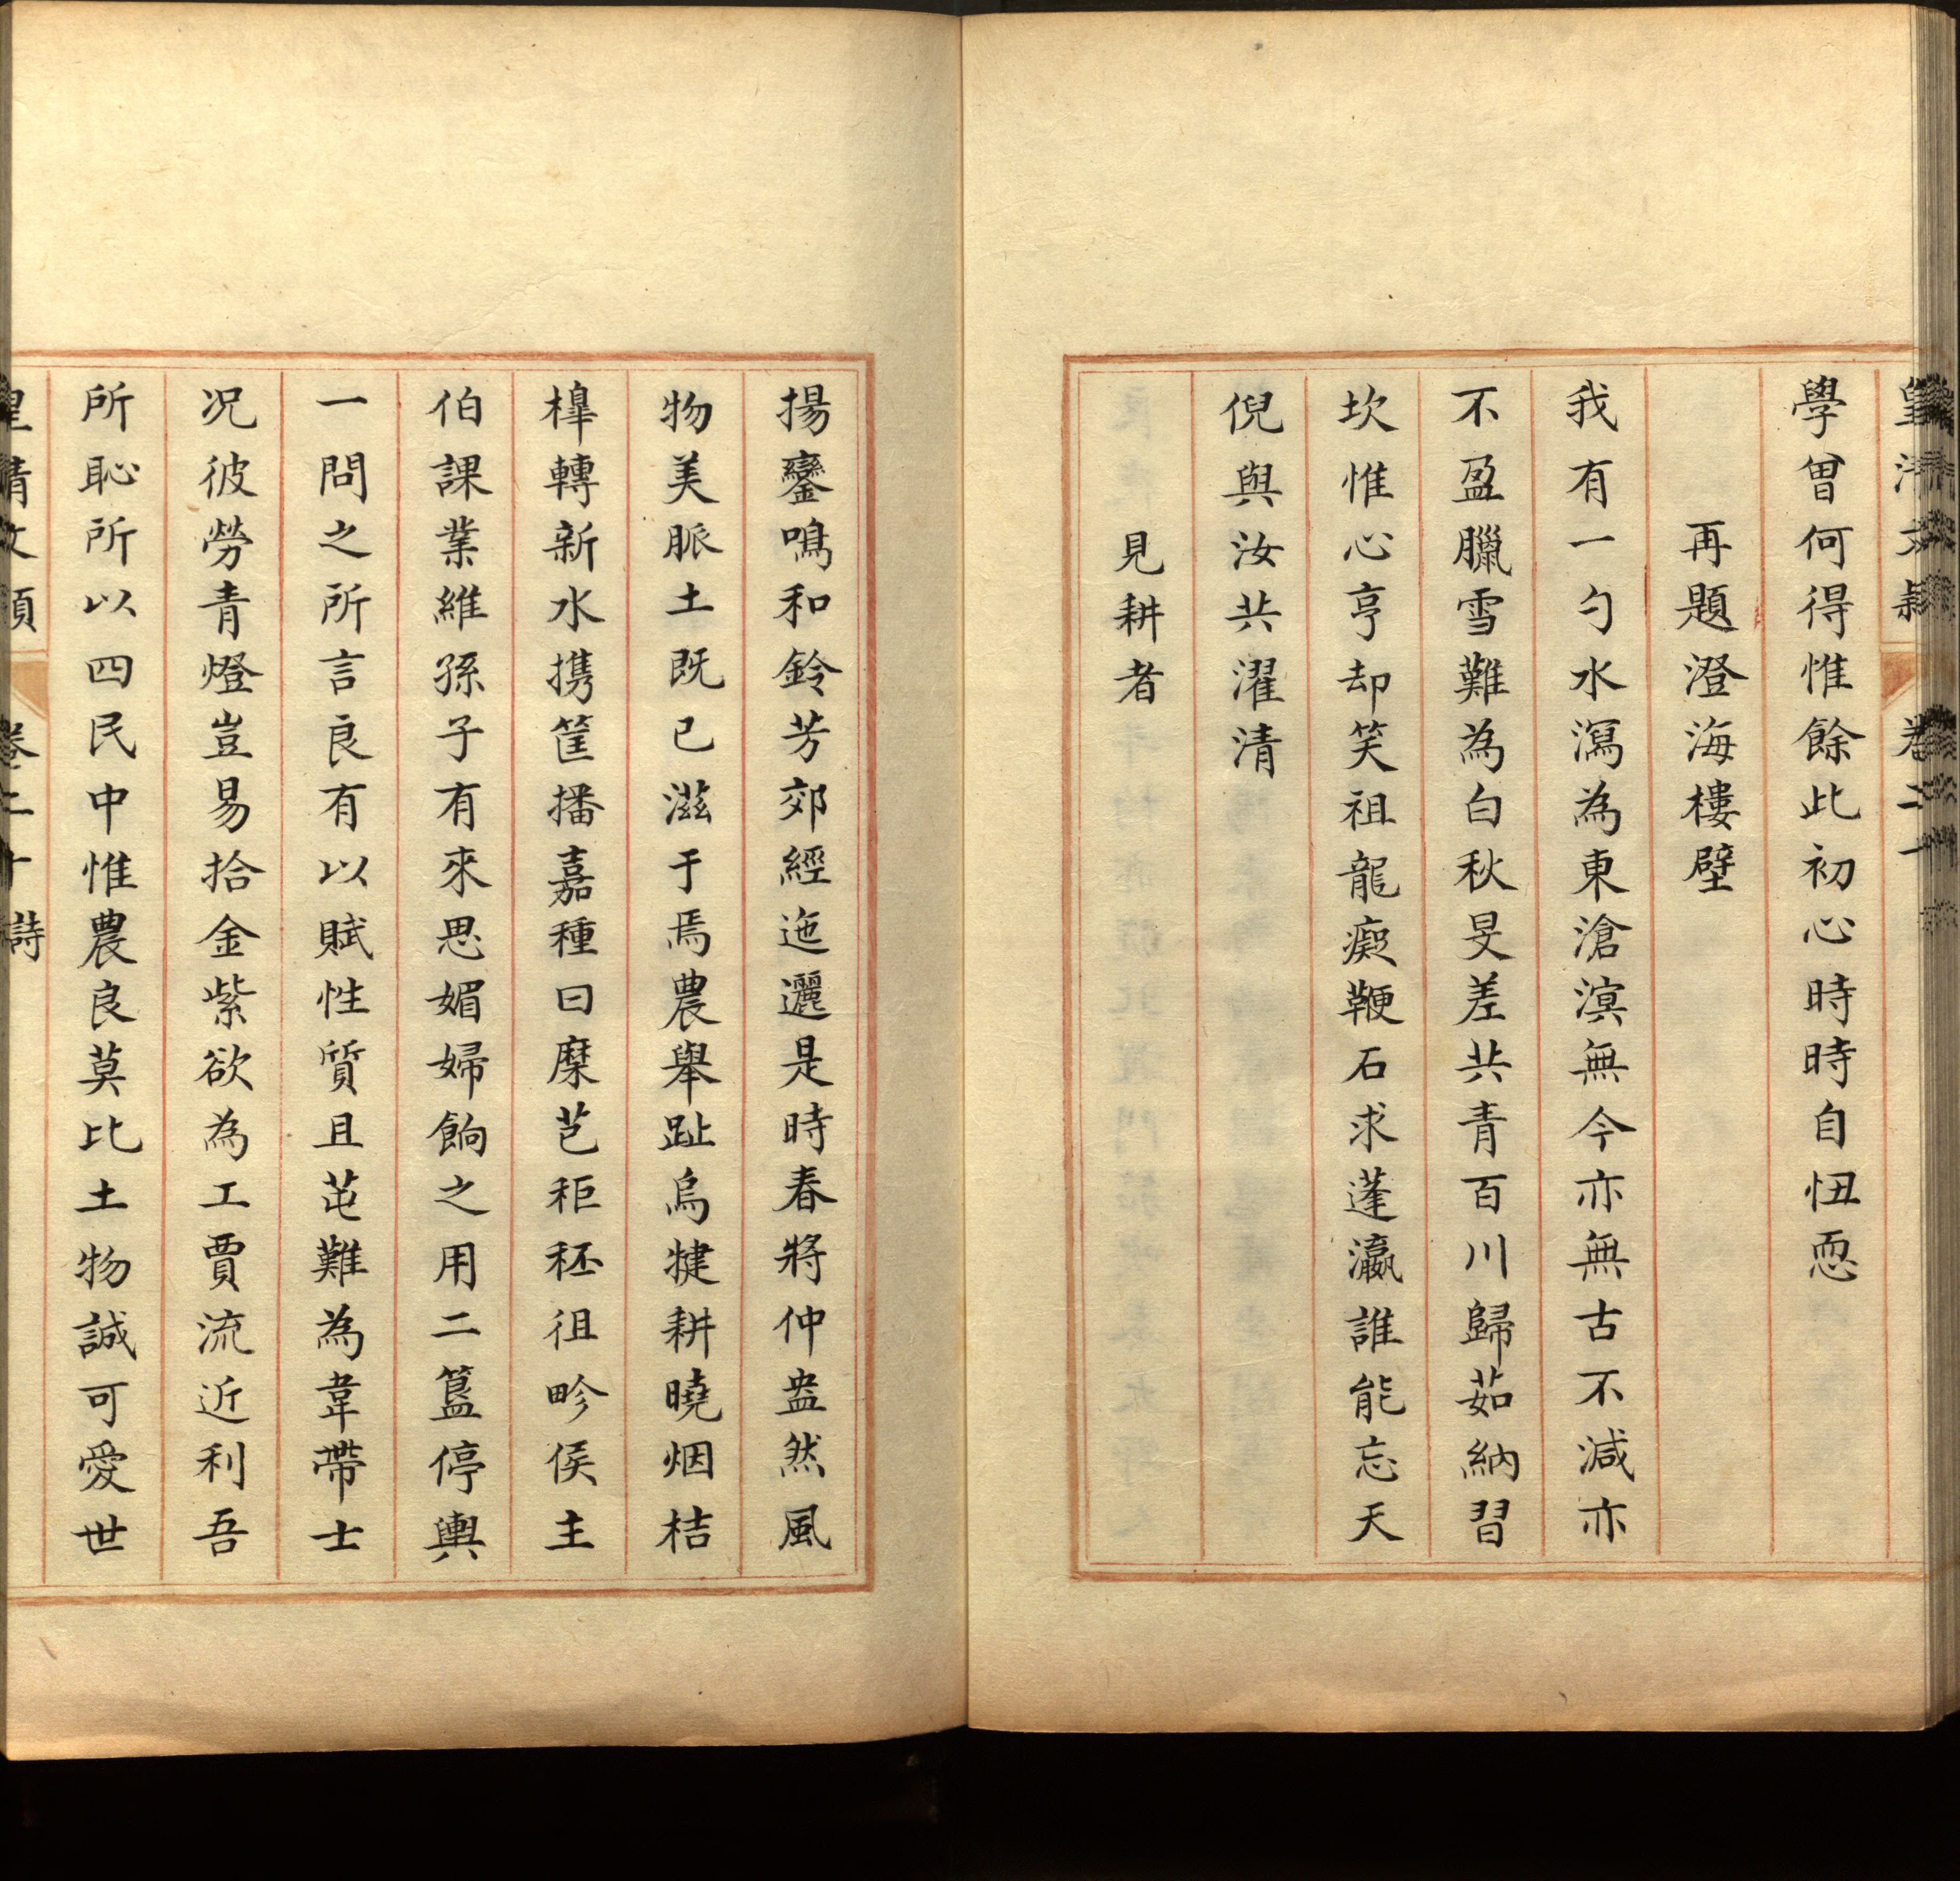 皇清文穎 卷二十
學曾何得惟餘此初心時時自忸恧
再題澄海樓壁
我有一勺水瀉為東滄溟無今亦無古不減亦
不盈臘雪難為白秋旻差共青百川歸茹納習
坎惟心亨却笑祖龍癡鞭石求蓬瀛誰能忘天
倪與汝共濯清
見耕者
揚鑾鳴和鈴芳郊經迤邐是時春將仲盎然風
物美脈土既已滋于焉農舉趾烏犍耕曉烟桔
槹轉新水携筐播嘉種曰穈芑秬秠徂畛侯主
伯課業維孫子有來思媚婦餉之用二簋停輿
一問之所言良有以賦性質且芚難為韋帶士
况彼勞青燈豈易拾金紫欲為工賈流近利吾
所恥所以四民中惟農良莫比土物誠可愛世
皇清文穎 卷二十 詩